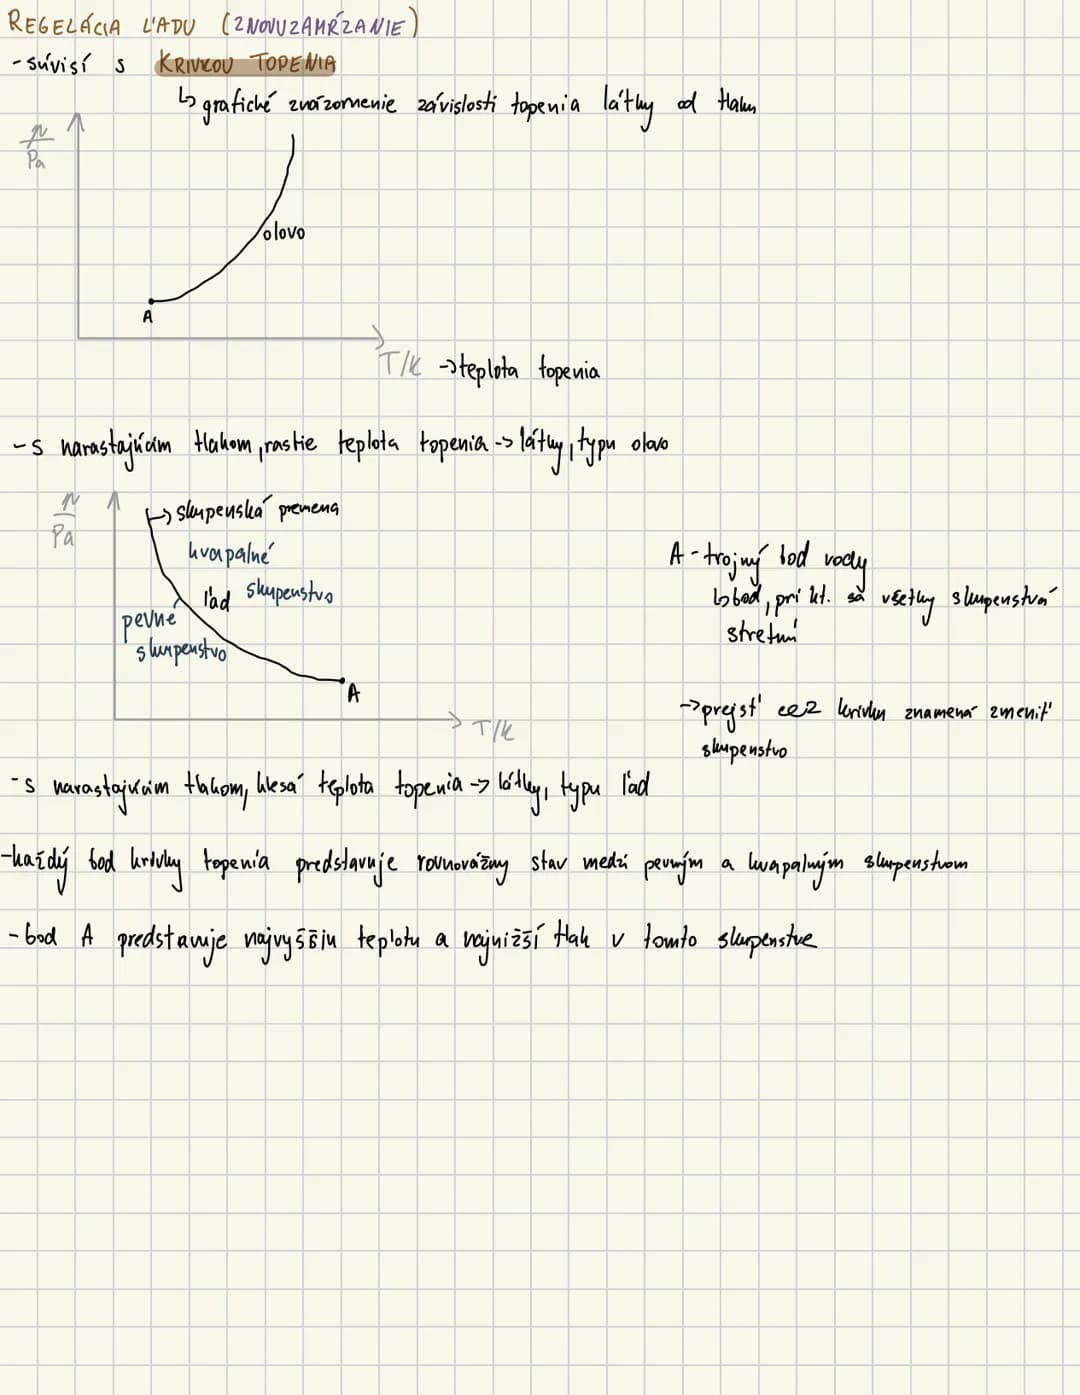 REGELÁCIA ĽADU (ZNOVUZAMŔZANIE)
- súvisí s KRIVKOU TOPENIA
↳ grafické znázornenie závislosti topenia látky od tlaku
p
Pa
olovo
A
T/K → teplota topenia
- s narastajúcim tlakom, rastie teplota topenia -> látky, typu olovo
p
Pa
↦ skupenská premena
kvapalné
skupenstvo
ľad
pevné
skupenstvo
A
T/K
A - trojný bod vody
↳ bod, pri kt. sa všetky skupenstvá
stretnú
-> prejsť cez krivku znamená zmeniť
skupenstvo
- s narastajúcim tlakom, klesá teplota topenia -> látky, typu ľad
- každý bod krivky topenia predstavuje rovnovážny stav medzi pevným a kvapalným skupenstvom
- bod A predstavuje najvyššiu teplotu a najnižší tlak v tomto skupenstve